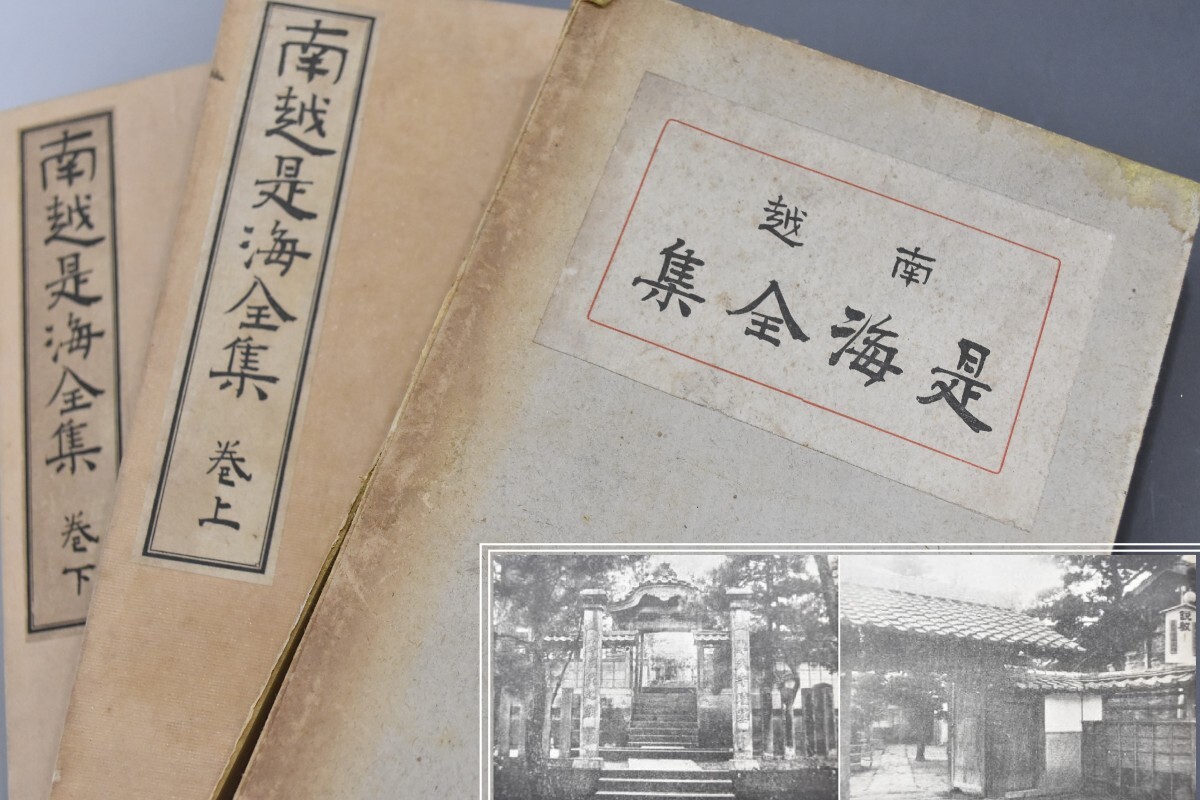 南越是海全集 巻下
南越是海全集 巻上
南越
是海全集